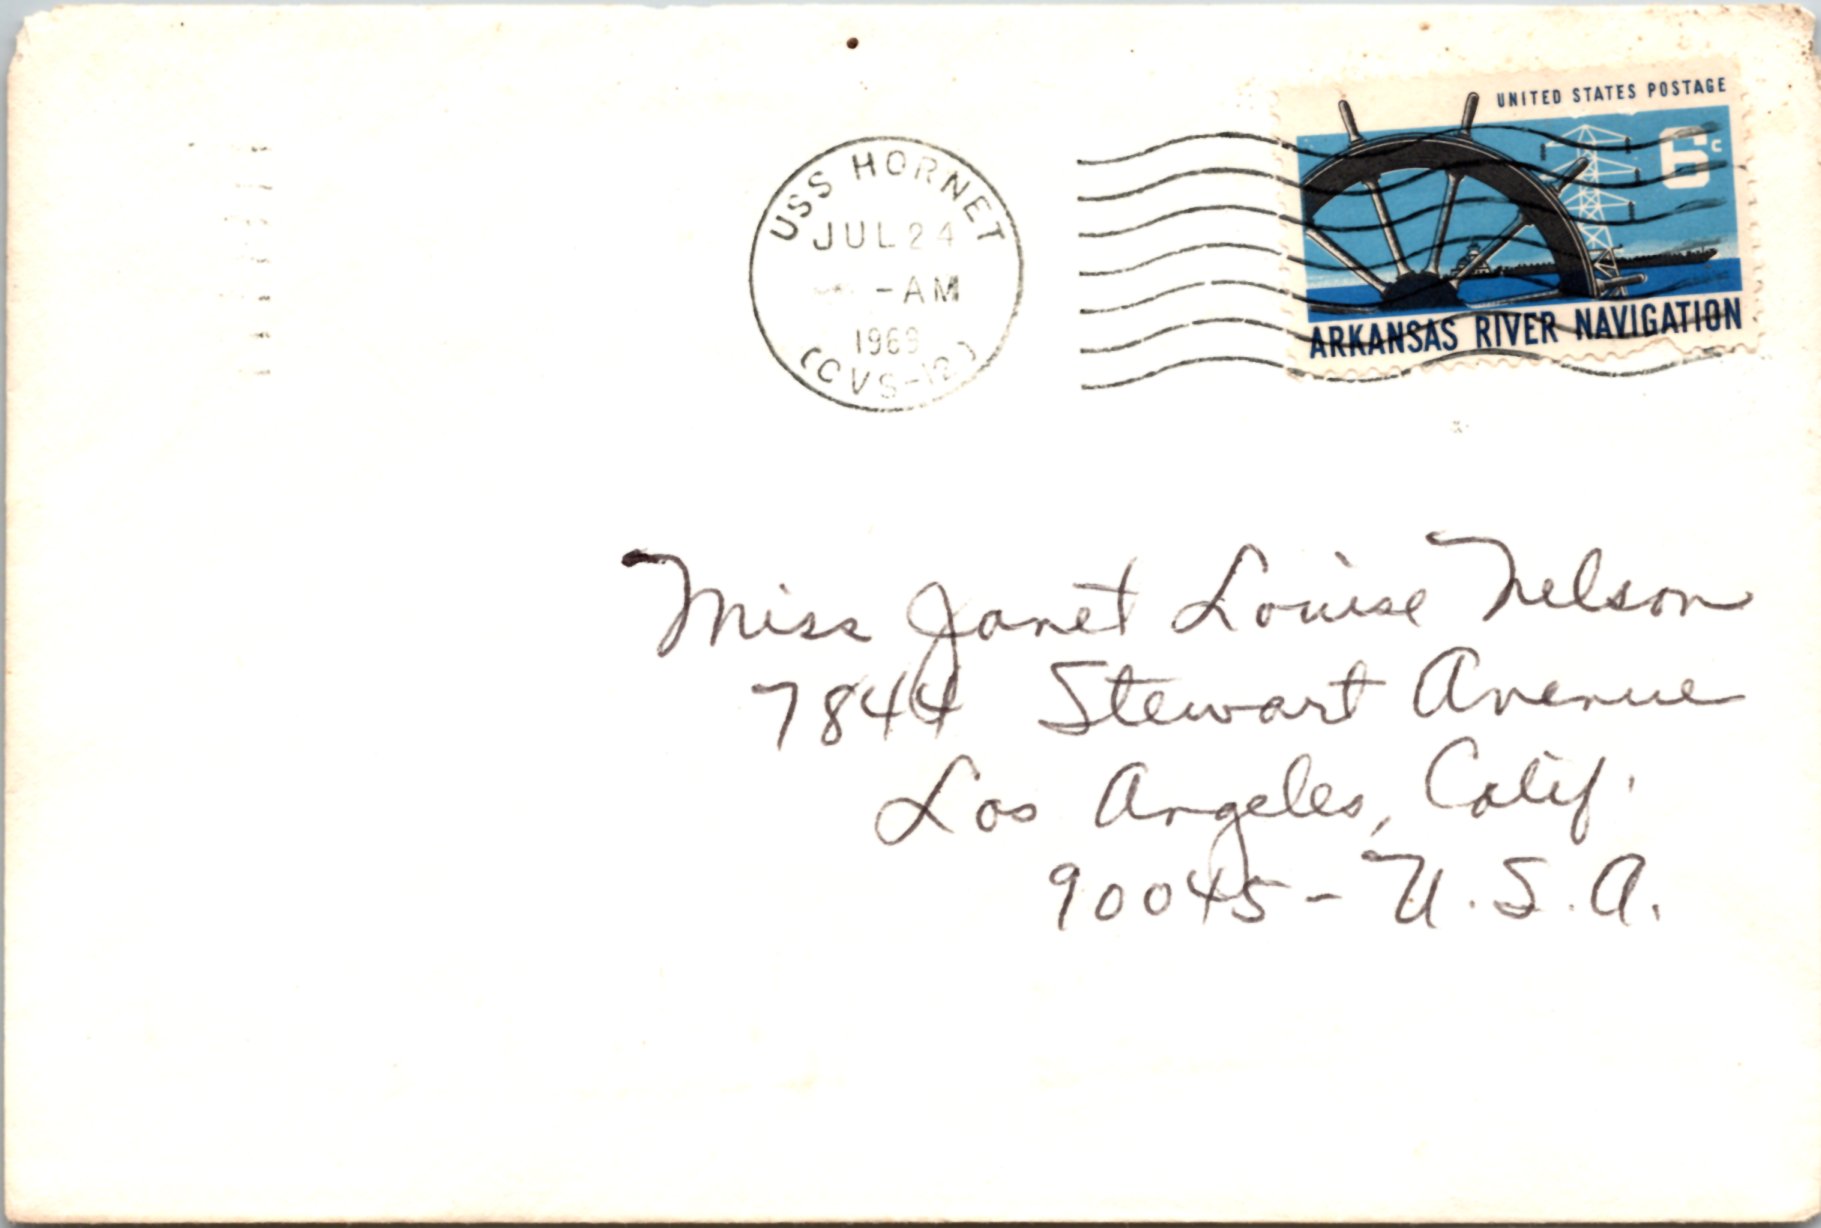 UNITED STATES POSTAGE
6c
ARKANSAS RIVER NAVIGATION
USS HORNET
JUL 24
-AM
1969
(CVS-12)
Miss Janet Louise Nelson
7844 Stewart Avenue
Los Angeles, Calif.
90045 - U.S.A.